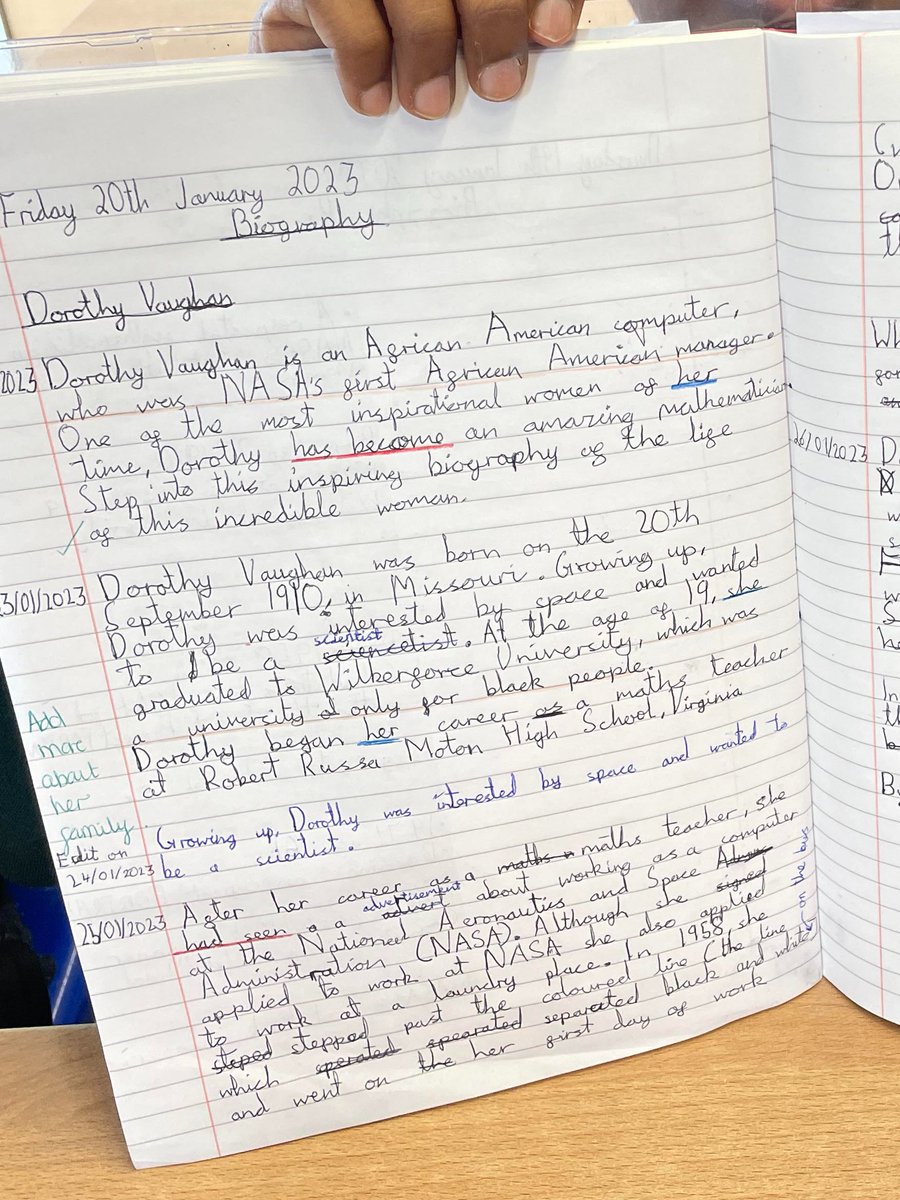 Friday 20th January 2023
Biography
Dorothy Vaughan
2023 Dorothy Vaughan is an African American computer,
who was NASA's first African American manager.
One of the most inspirational women of her
time, Dorothy has become an amazing mathematician.
Step into this inspiring biography of the life
of this incredible woman.
3/01/2023 Dorothy Vaughan was born on the 20th
September 1910, in Missouri. Growing up,
Dorothy was interested by space and wanted
to be a scientist sciencetist. At the age of 19, she
graduated to Wilberforce University, which was
a university only for black people.
Dorothy began her career as a maths teacher
at Robert Russa Moton High School, Virginia
Add
more
about
her
family.
Edit on
24/01/2023
Growing up, Dorothy was interested by space and wanted to
be a scientist.
25/01/2023 After her career as a maths maths teacher, she
had seen a advertisement advert about working as a computer
at the National Aeronautics and Space
Administration (NASA). Although she signed
applied to work at NASA she also applied
to work at a laundry place. In 1958, she
steped stepped past the coloured line (the line on the bus
which sperated spearated separated black and white)
and went on the her first day of work
26/01/2023